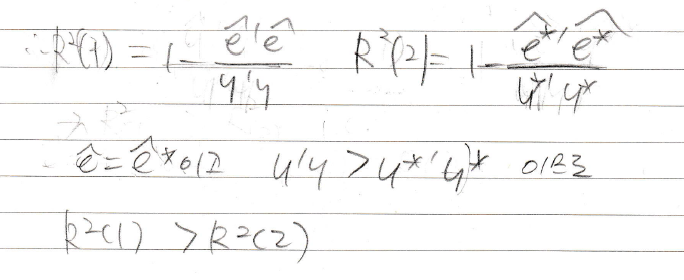 ∴ R²(1) = 1 - ê'ê / y'y    R²(2) = 1 - ê*'ê* / y*'y*
ê = ê* 이고 y'y > y*'y* 이므로
R²(1) > R²(2)